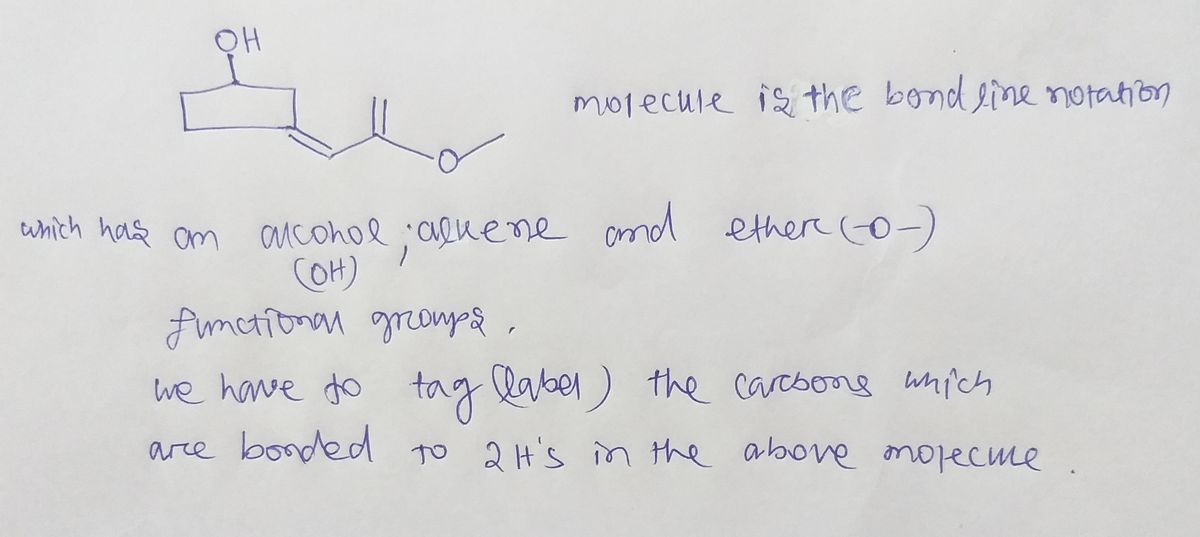 OH
molecule is the bond line notation
O
which has an alcohol ; alkene and ether (-O-)
(OH)
functional groups .
we have to tag (label) the carbons which
are bonded to 2H's in the above molecule .